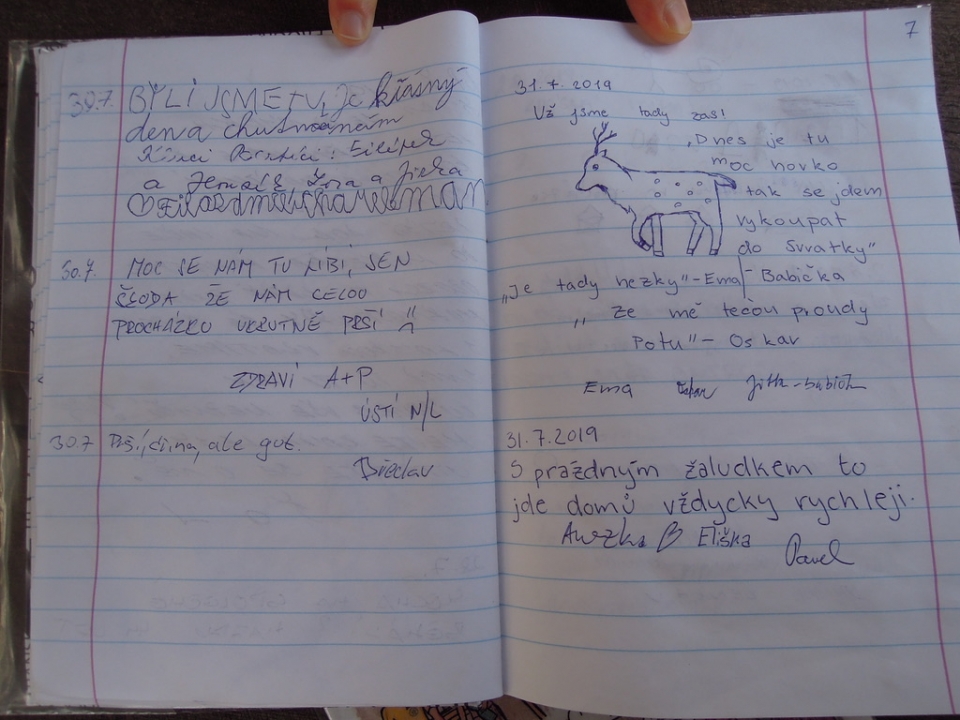 30.7. BYLI JSME TU, je krásný
den a chutná nám
a Jirka
30.7. MOC SE NÁM TU LÍBÍ, JEN
ŠKODA ŽE NÁM CELOU
PROCHÁZKU UKRUTNĚ PRŠÍ
ZDRAVÍ A+P
ÚSTÍ N/L
30.7 Prší, zima, ale gut.
Břeclav
7
31.7.2019
Už jsme tady zas!
„Dnes je tu
moc horko
tak se jdem
vykoupat
do Svratky"
„Je tady hezky"-Ema - Babička
„ Ze mě tečou proudy
Potu" - Oskar
Ema Oskar Jitka-babička
31.7.2019
S prázdným žaludkem to
jde domů vždycky rychleji.
Anežka B Eliška
Pavel